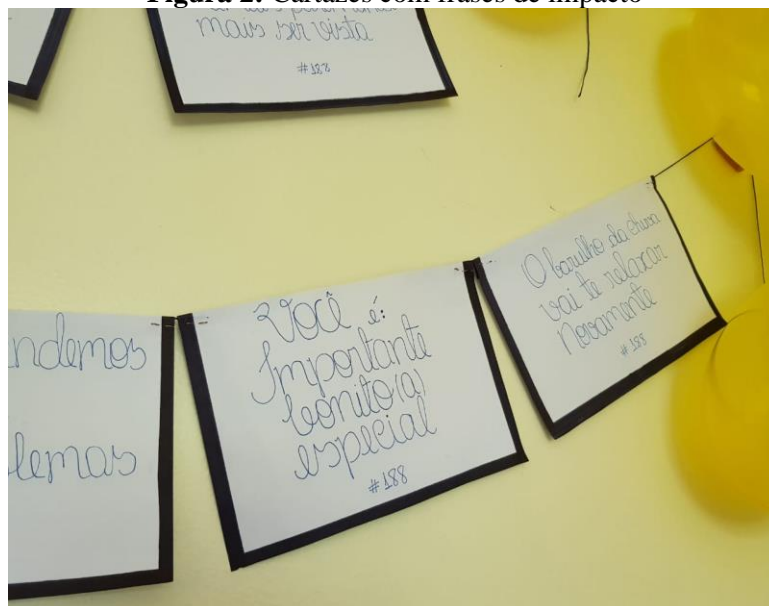 Figura 2: Cartazes com frases de impacto
mais ser vista
#182
ndemos
lemas
Você é:
Importante
bonito(a)
especial
#188
O barulho da chuva
vai te relaxar
Novamente
#188